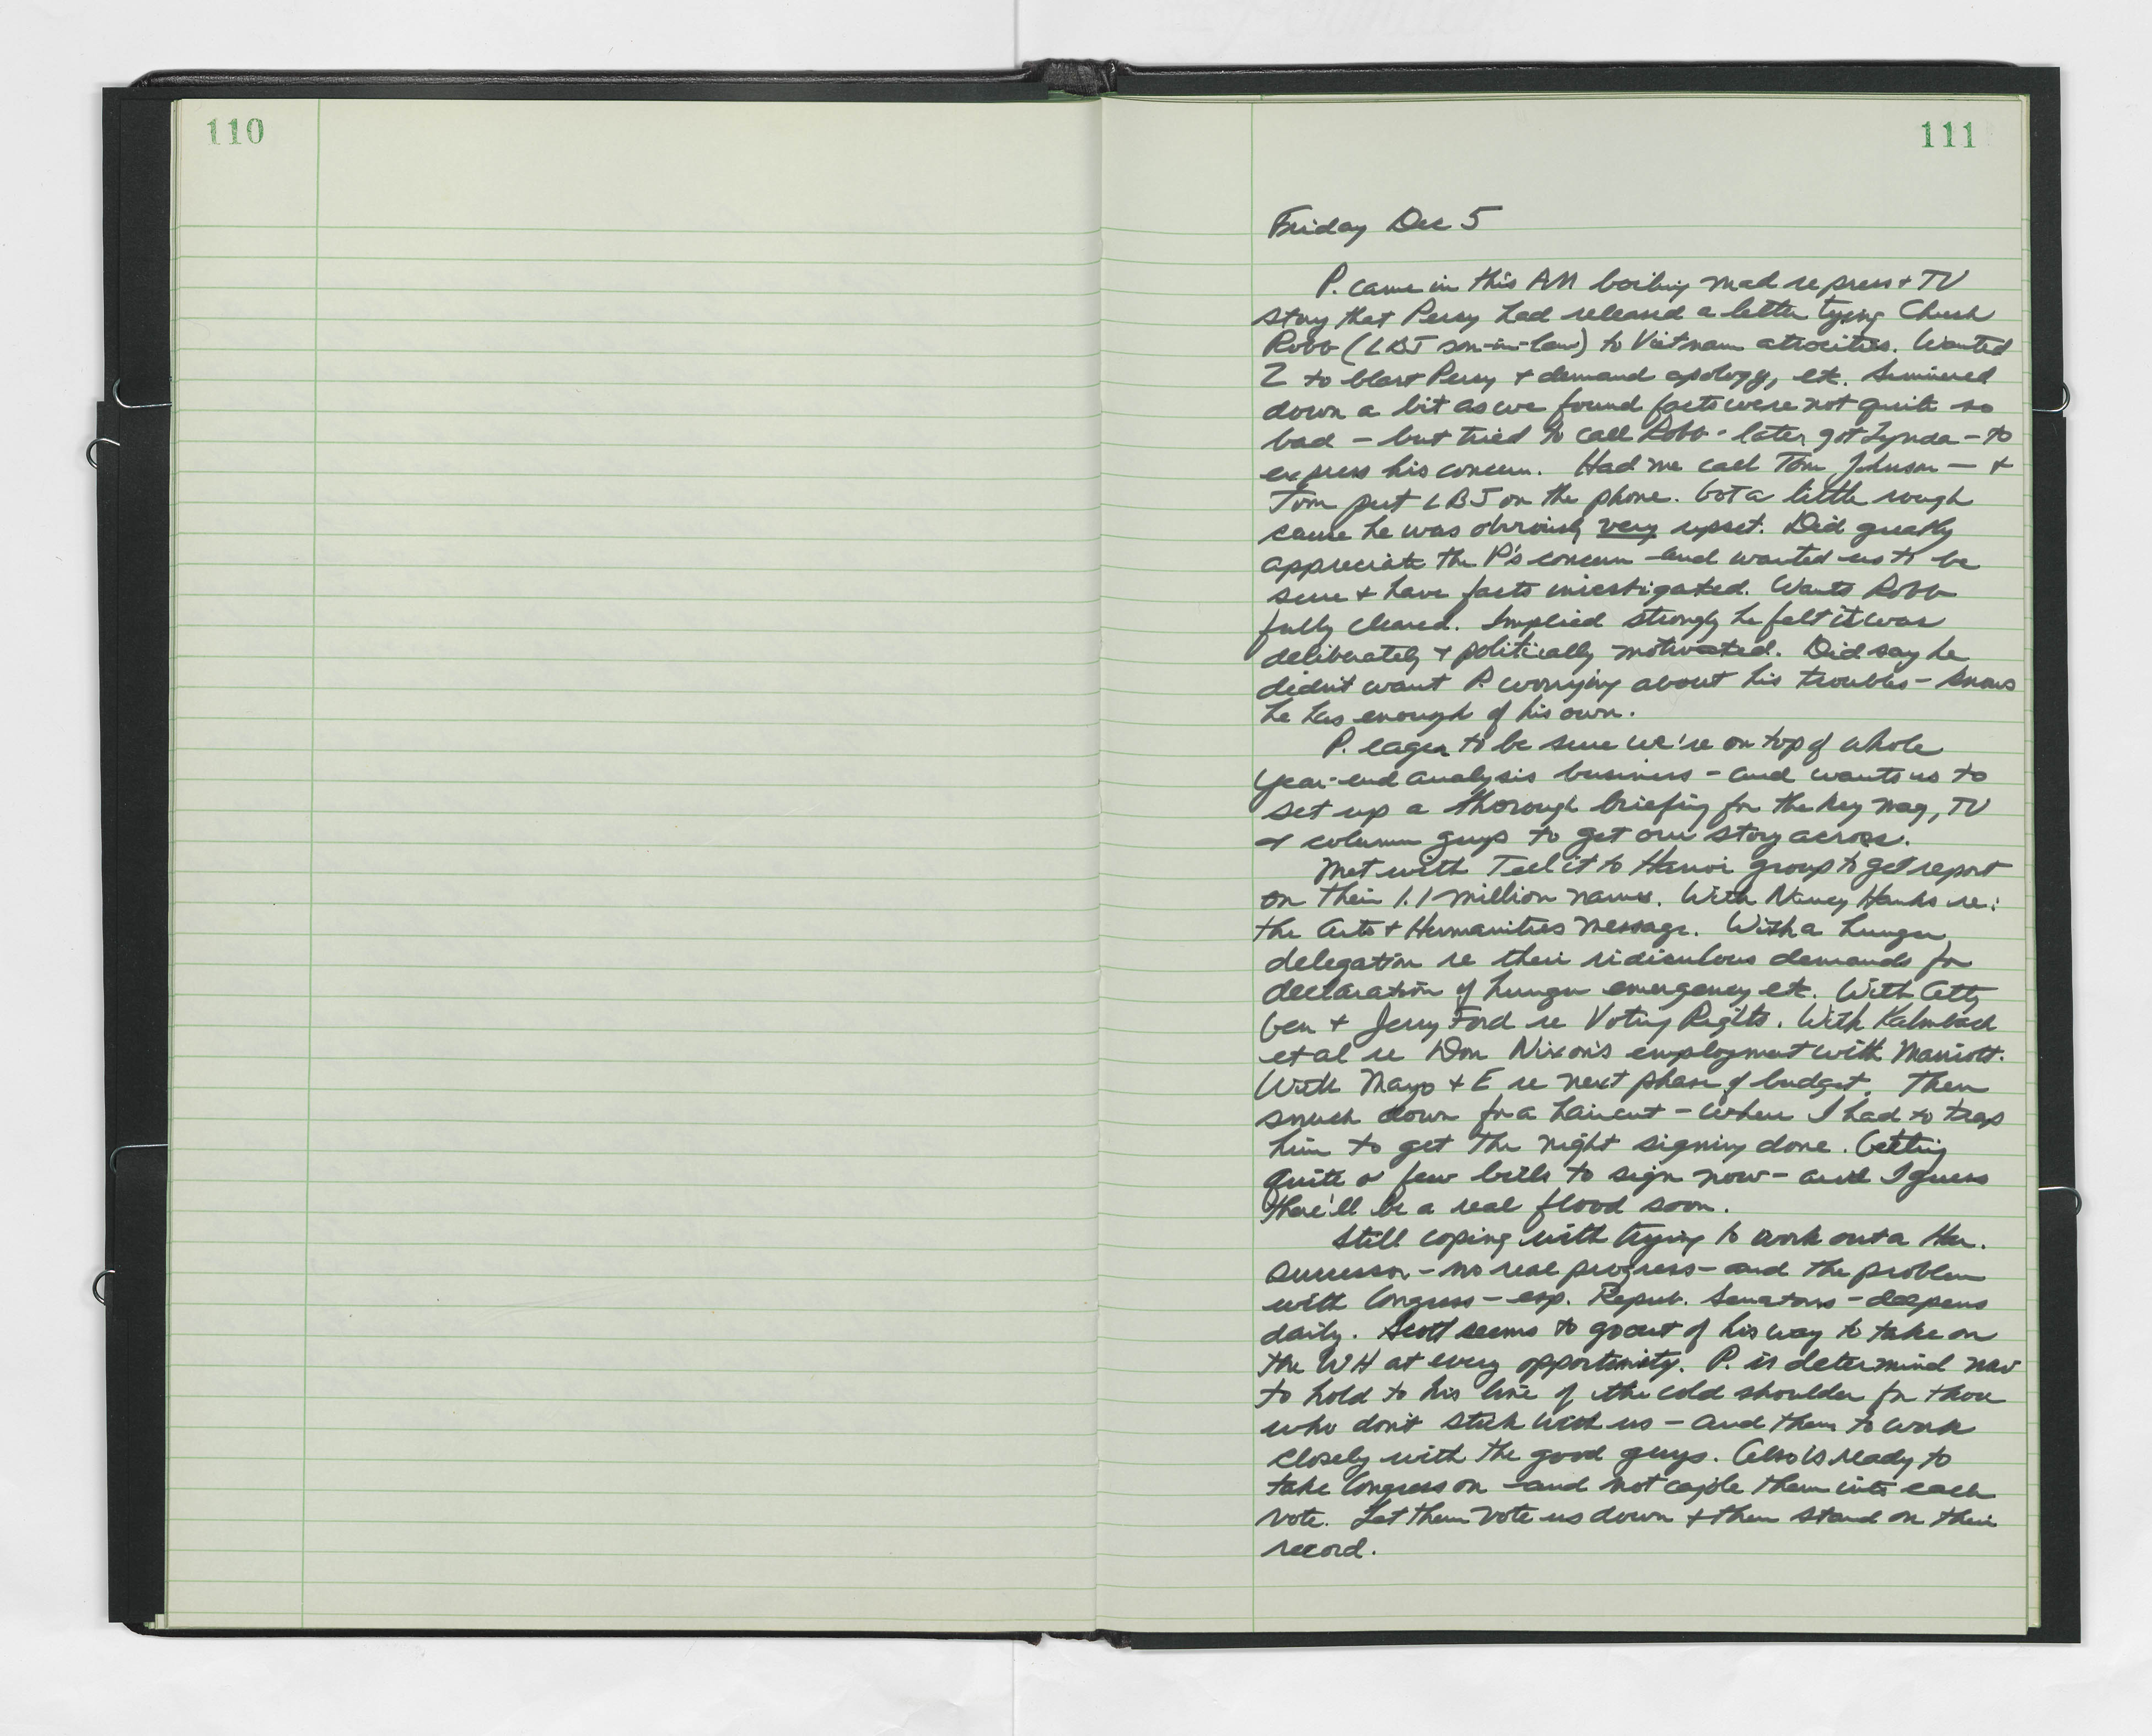 110
111
Friday Dec 5
P. came in this AM boiling mad re press & TV
story that Percy had released a letter tying Chuck
Robb (LBJ son-in-law) to Vietnam atrocities. Wanted
Z to blast Percy & demand apology, etc. Simmered
down a bit as we found facts were not quite so
bad - but tried to call Robb - later got Lynda - to
express his concern. Had me call Tom Johnson - &
Tom put LBJ on the phone. Got a little rough
cause he was obviously very upset. Did greatly
appreciate the P's concern - and wanted us to be
sure & have facts investigated. Wants Robb
fully cleared. Implied strongly he felt it was
deliberately & politically motivated. Did say he
didn't want P. worrying about his troubles - knows
he has enough of his own.
P. eager to be sure we're on top of whole
year-end analysis business - and wants us to
set up a thorough briefing for the key mag, TV
& column guys to get our story across.
Met with Tell it to Hanoi group to get report
on their 1.1 million names. With Nancy Hanks re:
the Arts & Humanities message. With a hunger
delegation re their ridiculous demands for
declaration of hunger emergency etc. With Atty
Gen & Jerry Ford re Voting Rights. With Kalmbach
et al re Don Nixon's employment with Marriott.
With Mayo & E re next phase of budget. Then
snuck down for a haircut - where I had to trap
him to get the night signing done. Getting
quite a few bills to sign now - and I guess
there'll be a real flood soon.
Still coping with trying to work out a Her.
successor - no real progress - and the problem
with Congress - esp. Repub. Senators - deepens
daily. Scott seems to go out of his way to take on
the WH at every opportunity. P. is determind now
to hold to his line of the cold shoulder for those
who don't stick with us - and then to work
closely with the good guys. Also is ready to
take Congress on - and not cajole them into each
vote. Let them vote us down & then stand on their
record.